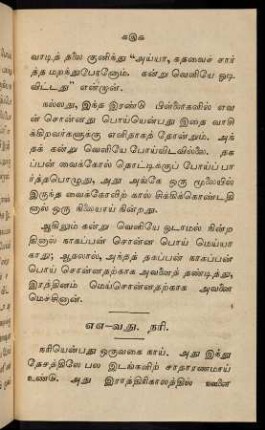 கடுக
வாடித் தலை குனிந்து "அய்யா, கதவைச் சார்
த்த மறந்துபோனோம். கன்று வெளியே ஓடி
விட்டது" என்றான்.
நல்லது, இந்த இரண்டு பிள்ளைகளில் எவ
ன் சொன்னது பொய்யென்பது இதை வாசி
க்கிறவர்களுக்கு எளிதாகத் தோன்றும். அந்
தக் கன்று வெளியே போய்விடவில்லை. தக
ப்பன் வைக்கோல் தொட்டிக்குப் போய்ப் பா
ர்த்தபொழுது, அது அங்கே ஒரு மூலையில்
இருந்த வைக்கோலிற் கால் சிக்கிக்கொண்டத
னால் ஒரு
ஆகிலும் கன்று வெளியே ஓடாமல் நின்ற
தினால் காகப்பன் சொன்ன பொய் மெய்யா
காது; ஆதலால், அந்தத் தகப்பன் காகப்பன்
பொய் சொன்னதற்காக அவனைத் தண்டித்து,
மெய்சொன்னதற்காக அவனை
மெச்சினான்.
௭௭-வது. நரி.
நரியென்பது ஒருவகை நாய். அது இந்து
தேசத்திலே பல இடங்களிற் சாதாரணமாய்
உண்டு. அது இராத்திரிகாலத்தில்